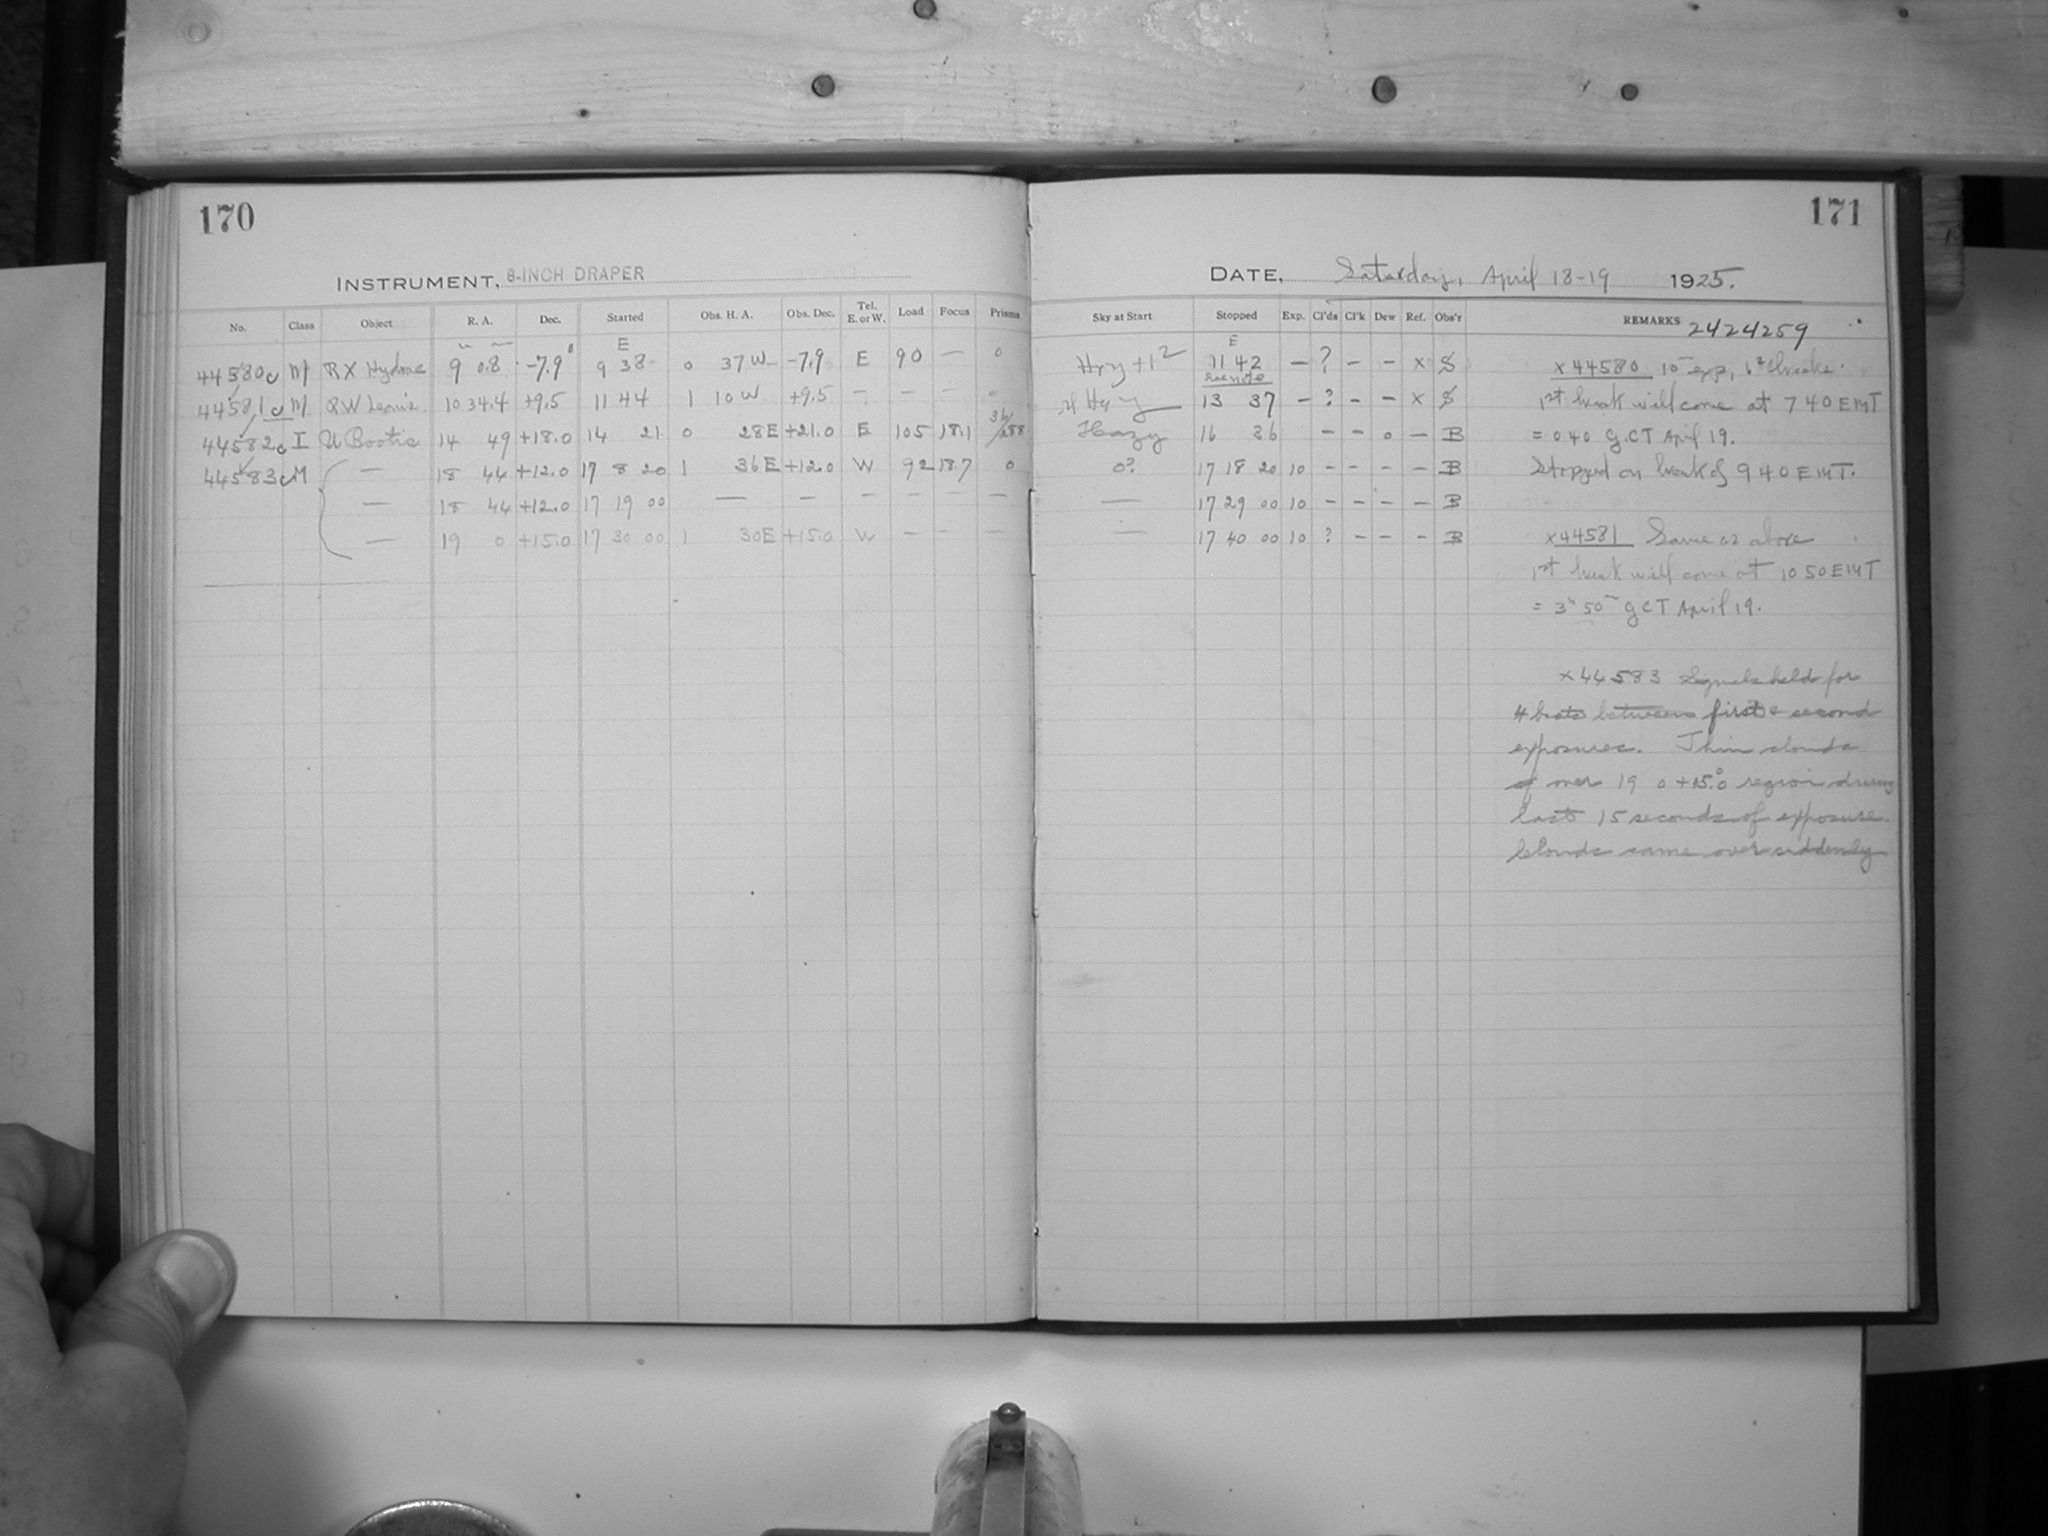 170
INSTRUMENT, 8-INCH DRAPER
No. Class Object R. A. Dec. Started Obs. H. A. Obs. Dec. Tel. E. or W. Load Focus Prisms
44580 M RX Hydrae 9 08 -7.9 E 9 38 0 37 W -7.9 E 90 — 0
44581 M QW Leonis 10 34.4 +9.5 11 44 1 10 W +9.5 - - - -
44582 I U Bootis 14 49 +18.0 14 21 0 28 E +21.0 E 105 18.1
44583 M — 18 44 +12.0 17 8 20 1 36 E +12.0 W 92 18.7 0
— 18 44 +12.0 17 19 00 — — — — — —
— 19 0 +15.0 17 30 00 1 30 E +15.0 W — — —
171
DATE, Saturday, April 18-19 1925.
Sky at Start Stopped Exp. Cl'ds Cl'k Dew Ref. Obs'r REMARKS 2424259
E 11 42 — ? — — x S
see note
13 37 — ? — — x S
Hazy 16 36 — — 0 — B
0? 17 18 20 10 — — — — B
— 17 29 00 10 — — — — B
— 17 40 00 10 ? — — — B
x 44580 10m exp,
1st break will come at 7 40 EMT
= 0 40 G.C.T April 19.
Stopped on break of 9 40 EMT.
x 44581 Same as above
1st break will come at 10 50 EMT
= 3h 50m GCT April 19.
x 44583 Signals held for
4 beats between first & second
exposures. Thin clouds
over 19 0 +15.0 region during
last 15 seconds of exposure.
Clouds came over suddenly